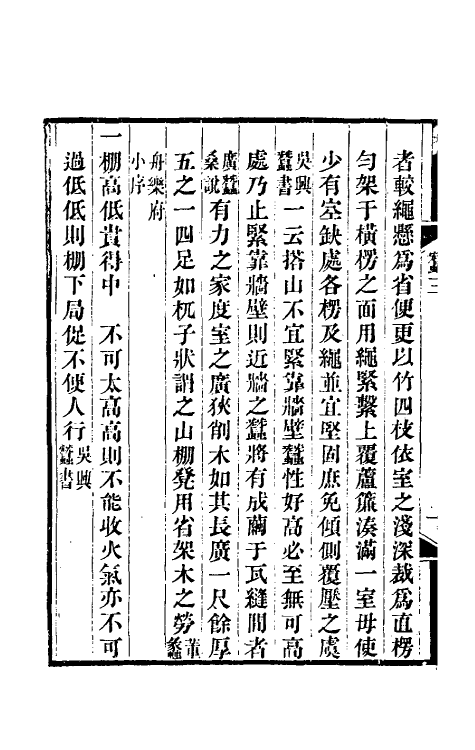 者較繩懸爲省便更以竹四枝依室之淺深裁爲直楞
勻架于橫楞之面用繩緊繫上覆蘆簾湊滿一室毋使
少有空缺處各楞及繩並宜堅固庶免傾側覆壓之虞
吳興蠶書一云搭山不宜緊靠牆壁蠶性好高必至無可高
處乃止緊靠牆壁則近牆之蠶將有成繭于瓦縫間者
廣蠶桑說有力之家度室之廣狹削木如其長廣一尺餘厚
五之一四足如杌子狀謂之山棚凳用省架木之勞董蠡
舟樂府小序
一棚高低貴得中　不可太高高則不能收火氣亦不可
過低低則棚下局促不便人行吳興蠶書